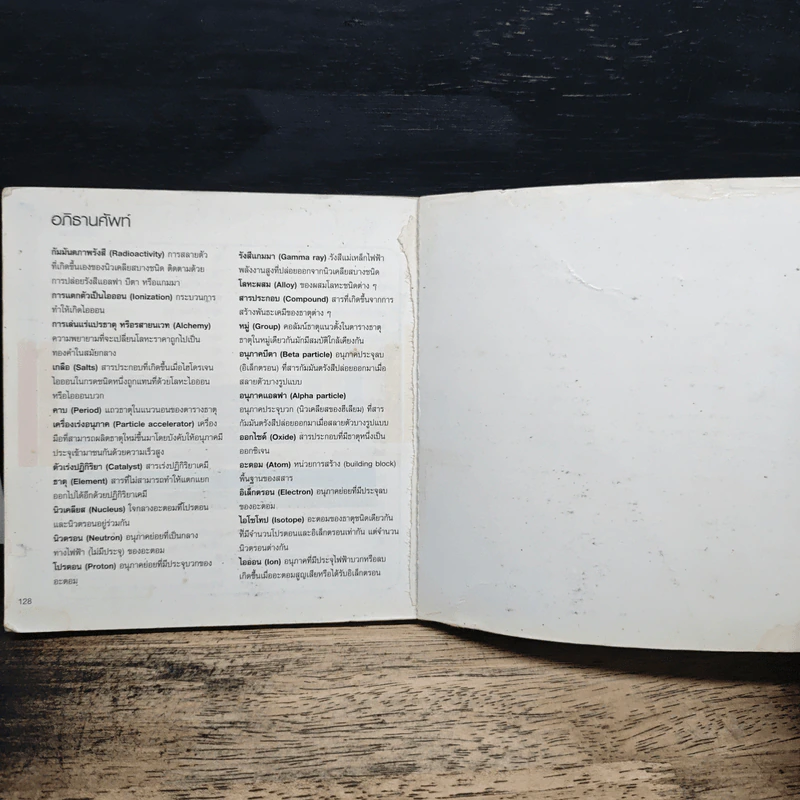 อภิธานศัพท์
กัมมันตภาพรังสี (Radioactivity) การสลายตัว
ที่เกิดขึ้นเองของนิวเคลียสบางชนิด ติดตามด้วย
การปล่อยรังสีแอลฟา บีตา หรือแกมมา
การแตกตัวเป็นไอออน (Ionization) กระบวนการ
ทำให้เกิดไอออน
การเล่นแร่แปรธาตุ หรือรสายนเวท (Alchemy)
ความพยายามที่จะเปลี่ยนโลหะราคาถูกไปเป็น
ทองคำในสมัยกลาง
เกลือ (Salts) สารประกอบที่เกิดขึ้นเมื่อไฮโดรเจน
ไอออนในกรดชนิดหนึ่งถูกแทนที่ด้วยโลหะไอออน
หรือไอออนบวก
คาบ (Period) แถวธาตุในแนวนอนของตารางธาตุ
เครื่องเร่งอนุภาค (Particle accelerator) เครื่อง
มือที่สามารถผลิตธาตุใหม่ขึ้นมาโดยบังคับให้อนุภาคมี
ประจุเข้ามาชนกันด้วยความเร็วสูง
ตัวเร่งปฏิกิริยา (Catalyst) สารเร่งปฏิกิริยาเคมี
ธาตุ (Element) สารที่ไม่สามารถทำให้แตกแยก
ออกไปได้อีกด้วยปฏิกิริยาเคมี
นิวเคลียส (Nucleus) ใจกลางอะตอมที่โปรตอน
และนิวตรอนอยู่ร่วมกัน
นิวตรอน (Neutron) อนุภาคย่อยที่เป็นกลาง
ทางไฟฟ้า (ไม่มีประจุ) ของอะตอม
โปรตอน (Proton) อนุภาคย่อยที่มีประจุบวกของ
อะตอม
รังสีแกมมา (Gamma ray) รังสีแม่เหล็กไฟฟ้า
พลังงานสูงที่ปล่อยออกจากนิวเคลียสบางชนิด
โลหะผสม (Alloy) ของผสมโลหะชนิดต่าง ๆ
สารประกอบ (Compound) สารที่เกิดขึ้นจากการ
สร้างพันธะเคมีของธาตุต่าง ๆ
หมู่ (Group) คอลัมน์ธาตุแนวตั้งในตารางธาตุ
ธาตุในหมู่เดียวกันมักมีสมบัติใกล้เคียงกัน
อนุภาคบีตา (Beta particle) อนุภาคประจุลบ
(อิเล็กตรอน) ที่สารกัมมันตรังสีปล่อยออกมาเมื่อ
สลายตัวบางรูปแบบ
อนุภาคแอลฟา (Alpha particle)
อนุภาคประจุบวก (นิวเคลียสของฮีเลียม) ที่สาร
กัมมันตรังสีปล่อยออกมาเมื่อสลายตัวบางรูปแบบ
ออกไซด์ (Oxide) สารประกอบที่มีธาตุหนึ่งเป็น
ออกซิเจน
อะตอม (Atom) หน่วยการสร้าง (building block)
พื้นฐานของสสาร
อิเล็กตรอน (Electron) อนุภาคย่อยที่มีประจุลบ
ของอะตอม
ไอโซโทป (Isotope) อะตอมของธาตุชนิดเดียวกัน
ที่มีจำนวนโปรตอนและอิเล็กตรอนเท่ากัน แต่จำนวน
นิวตรอนต่างกัน
ไอออน (Ion) อนุภาคที่มีประจุไฟฟ้าบวกหรือลบ
เกิดขึ้นเมื่ออะตอมสูญเสียหรือได้รับอิเล็กตรอน
128